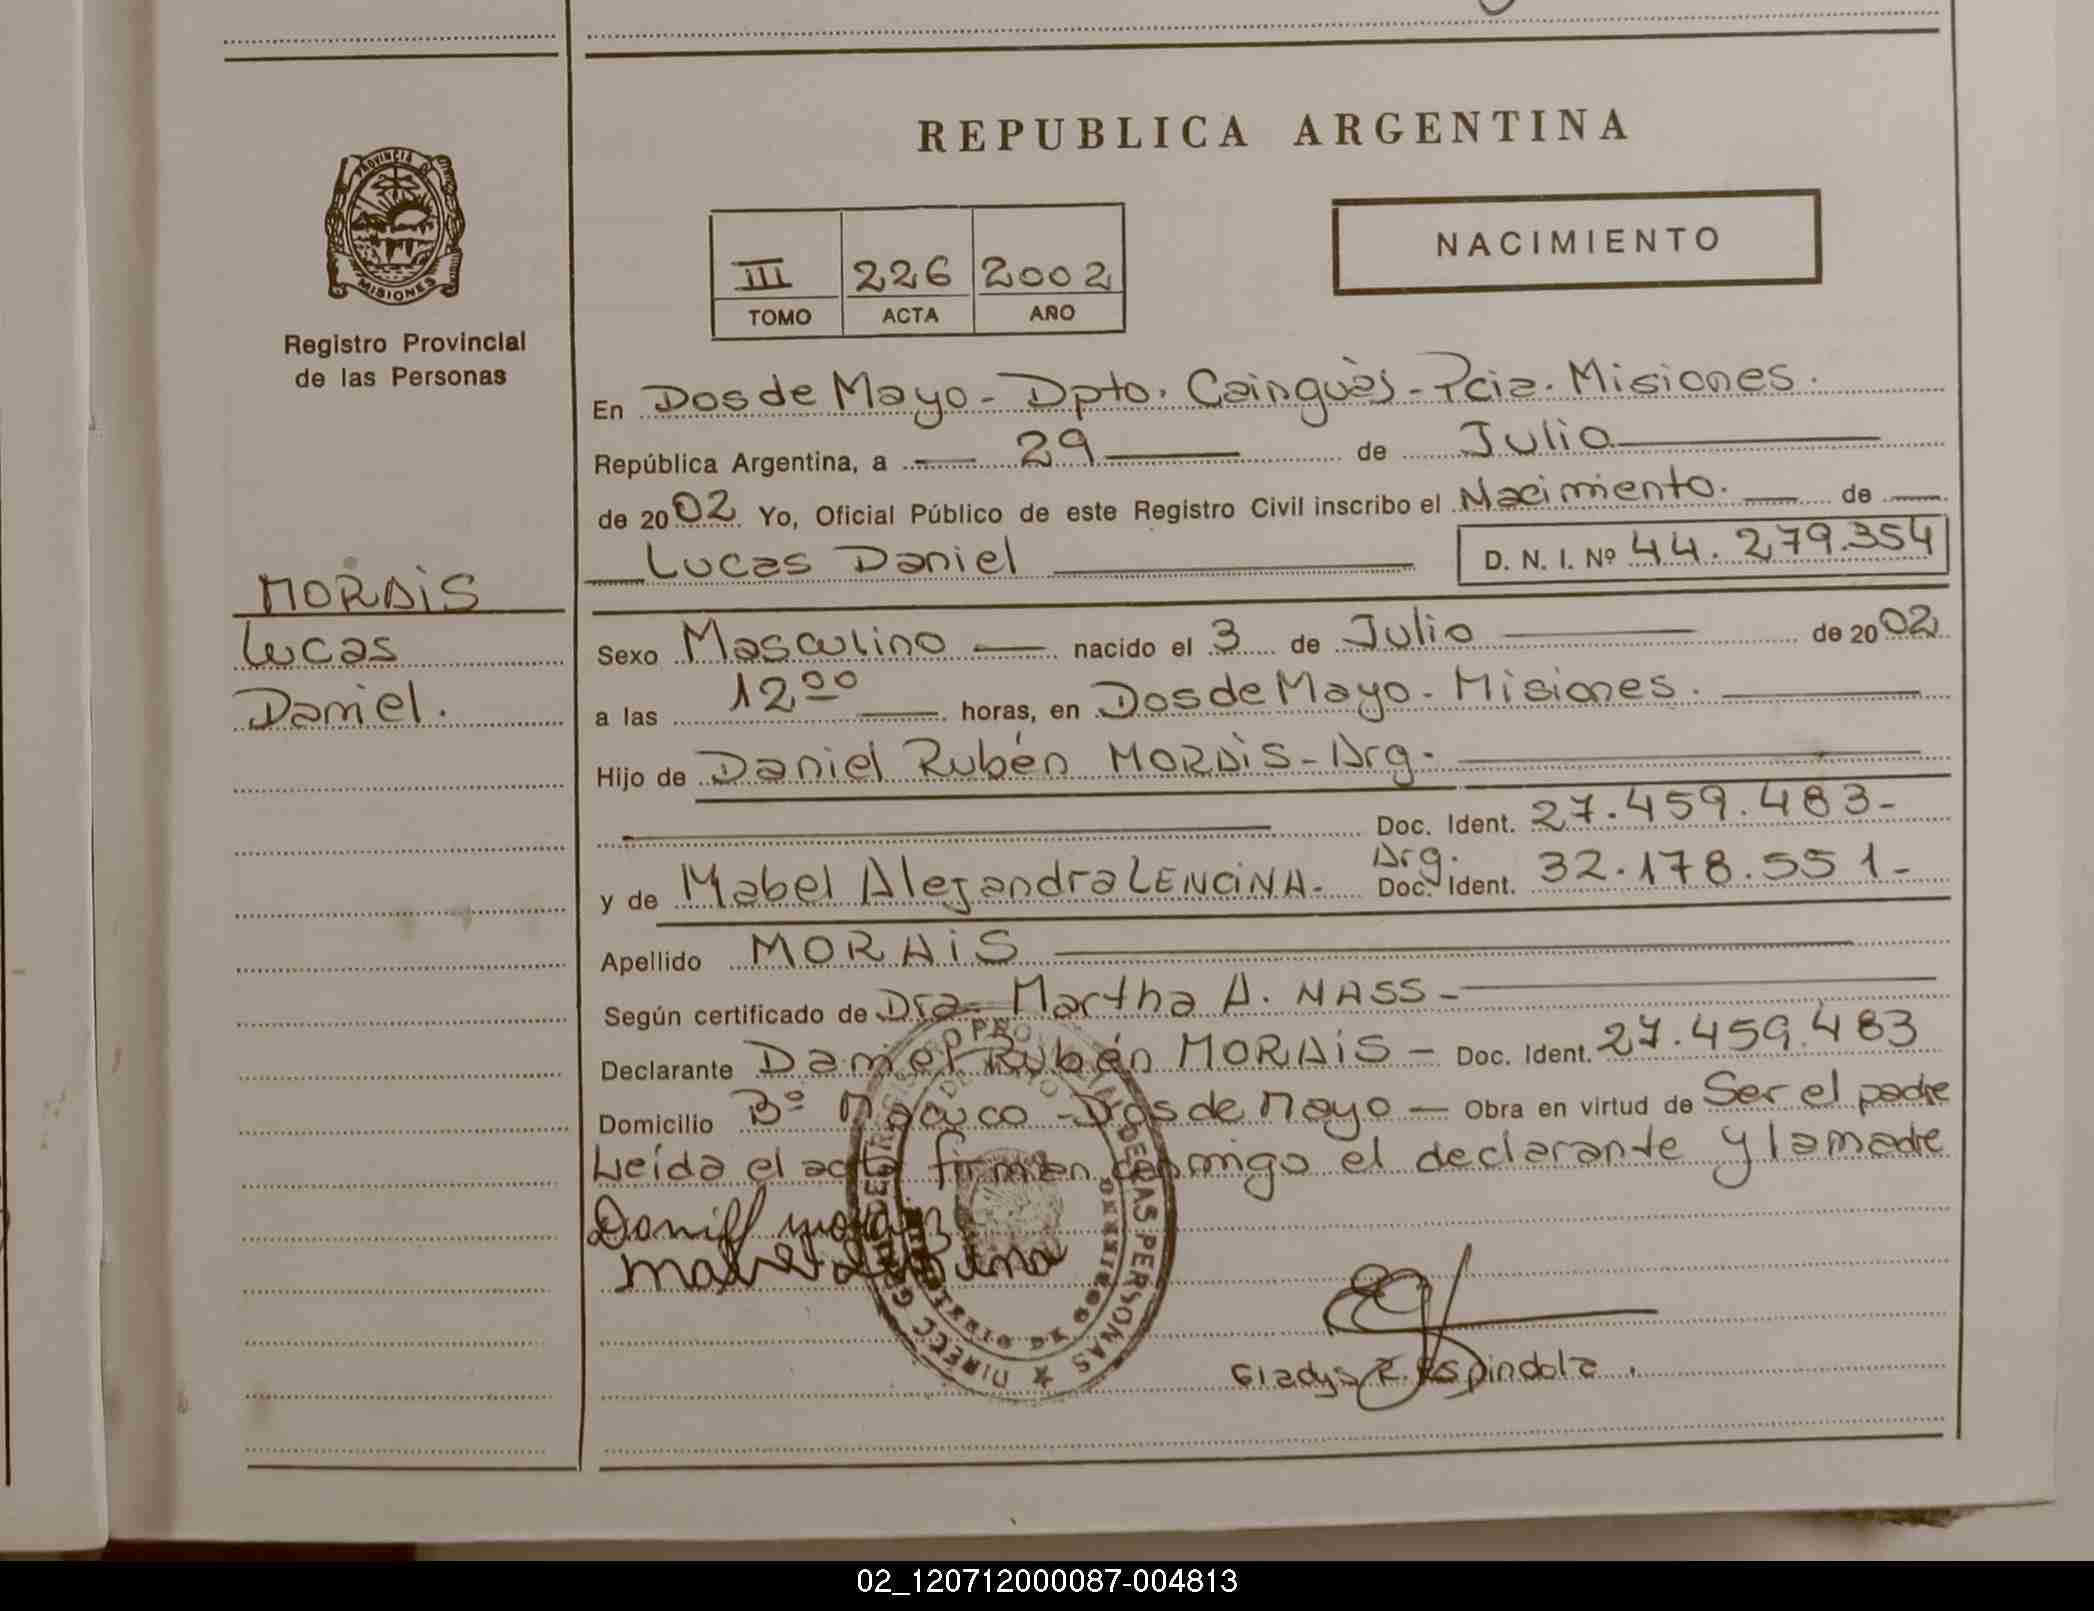 REPUBLICA ARGENTINA
PROVINCIA DE
MISIONES
Registro Provincial
de las Personas
NACIMIENTO
III 226 2002
TOMO ACTA AÑO
En Dos de Mayo - Dpto. Cainguàs - Pcia. Misiones.
República Argentina, a 29 de Julio
de 2002 Yo, Oficial Público de este Registro Civil inscribo el Nacimiento. de
Lucas Daniel D. N. I. Nº 44.279.354
MORAiS
Lucas
Daniel.
Sexo Masculino nacido el 3 de Julio de 2002
a las 12 00 horas, en Dos de Mayo - Misiones.
Hijo de Daniel Rubén MORAiS - Arg.
Doc. Ident. 27.459.483-
Arg.
y de Mabel Alejandra LENCiNA. Doc. Ident. 32.178.551-
Apellido MORAiS
Según certificado de Dra Martha A. NASS -
Declarante Daniel Rubén MORAiS - Doc. Ident. 27.459.483
Domicilio Bº Macuco - Dos de Mayo - Obra en virtud de Ser el padre
Leída el acta firman conmigo el declarante y la madre
DE LAS PERSONAS ★ DIRECC
Gladys E. Espindola.
02_120712000087-004813